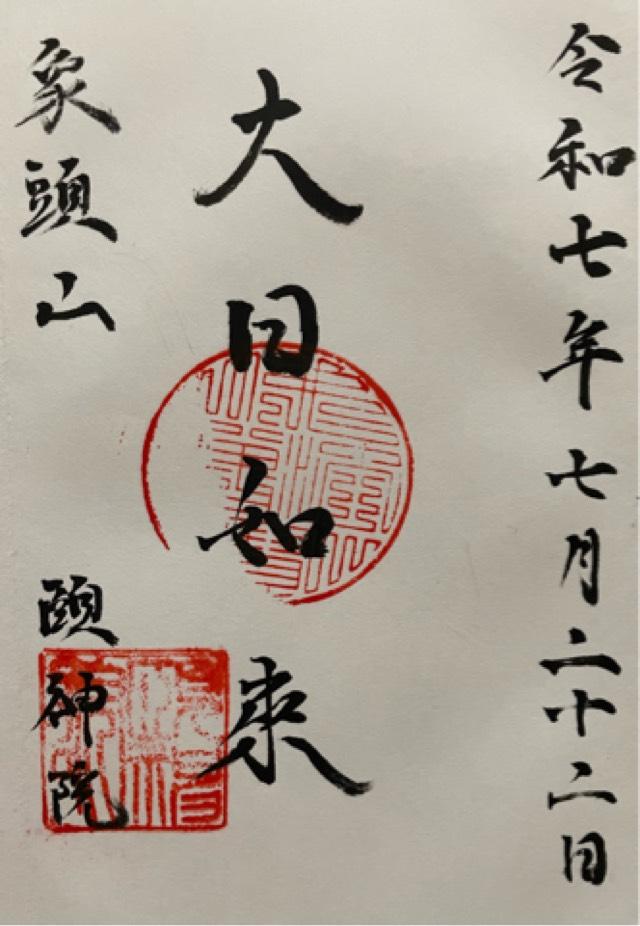 令和七年七月二十二日
大日如来
象頭山
頤神院